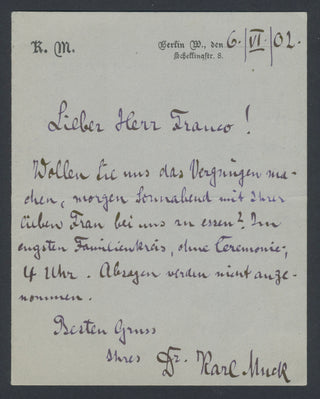 K. M.
Berlin W., den 6. | VI | 02.
Schellingstr. 8.
Lieber Herr Franco!
Wollen Sie uns das Vergnügen ma-
chen, morgen Sonnabend mit Ihrer
lieben Frau bei uns zu essen? Im
engsten Familienkreis, ohne Ceremonie,
4 Uhr. Absagen werden nicht ange-
nommen.
Besten Gruss
Ihres Dr. Karl Muck